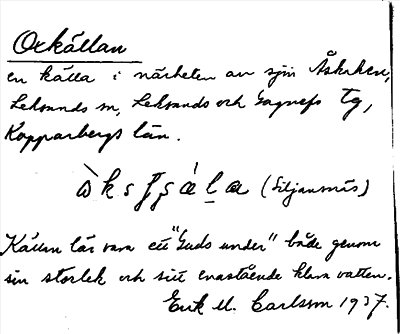 Orkällan
en källa i närheten av sjön
Leksands sn, Leksands och Gagnefs tg,
Kopparbergs län.
(Siljansnäs)
Källan lär vara ett "Guds under" både genom
sin storlek och sitt enastående klara vatten.
Erik M. Carlsson 1937.